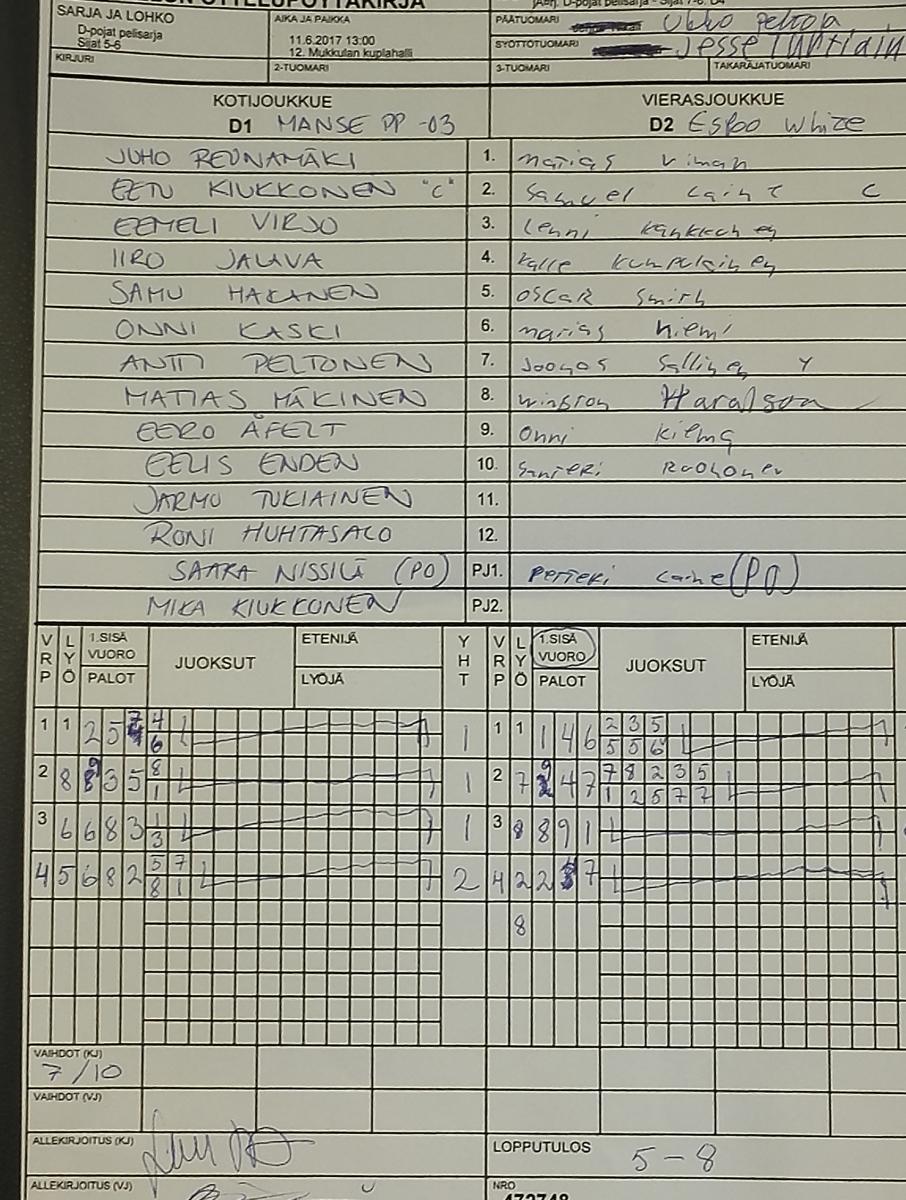 SARJA JA LOHKO
D-pojat pelisarja
Sijat 5-6
KIRJURI
AIKA JA PAIKKA
11.6.2017 13:00
12. Mukkulan kuplahalli
2-TUOMARI
PÄÄTUOMARI Ukko Peltola
SYÖTTÖTUOMARI Jesse
3-TUOMARI
TAKARAJATUOMARI
KOTIJOUKKUE
D1 MANSE PP -03
VIERASJOUKKUE
D2 Espoo White
JUHO REUNAMÄKI 1. Matias Viman
EETU KIUKKONEN "C" 2. Samuel Laine C
EEMELI VIRJO 3. Lenni Kankkunen
IIRO JALAVA 4. Kalle Kumpulainen
SAMU HAKANEN 5. OSCAR Smith
ONNI KASKI 6. Matias Niemi
ANTTI PELTONEN 7. Joonas Sallinen Y
MATIAS MÄKINEN 8. Winston Haralson
EERO ÅFELT 9. Onni Kilema
EELIS ENDEN 10. Santeri Ruohonen
JARMO TUKIAINEN 11.
RONI HUHTASALO 12.
SAARA NISSILÄ (PO) PJ1. Petteri Laine (PO)
MIKA KIUKKONEN PJ2.
VRP LYÖ 1.SISÄ VUORO PALOT JUOKSUT ETENIJÄ LYÖJÄ YHT VRP LYÖ 1.SISÄ VUORO PALOT JUOKSUT ETENIJÄ LYÖJÄ
1 1 2 5 4 1 1 1 1 4 6 2 3 5
6 5 5 6
2 8 9 3 5 8 1 2 7 9 4 7 7 8 2 3 5
1 1 2 5 7 7
3 6 6 8 3 1 1 3 8 8 9 1
3
4 5 6 8 2 5 7 2 4 2 2 7
8 1
8
VAIHDOT (KJ)
7/10
VAIHDOT (VJ)
ALLEKIRJOITUS (KJ)
LOPPUTULOS 5-8
ALLEKIRJOITUS (VJ)
NRO
472748